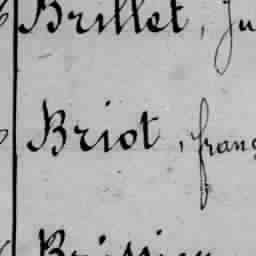 Brillet, Ju
Briot, franç